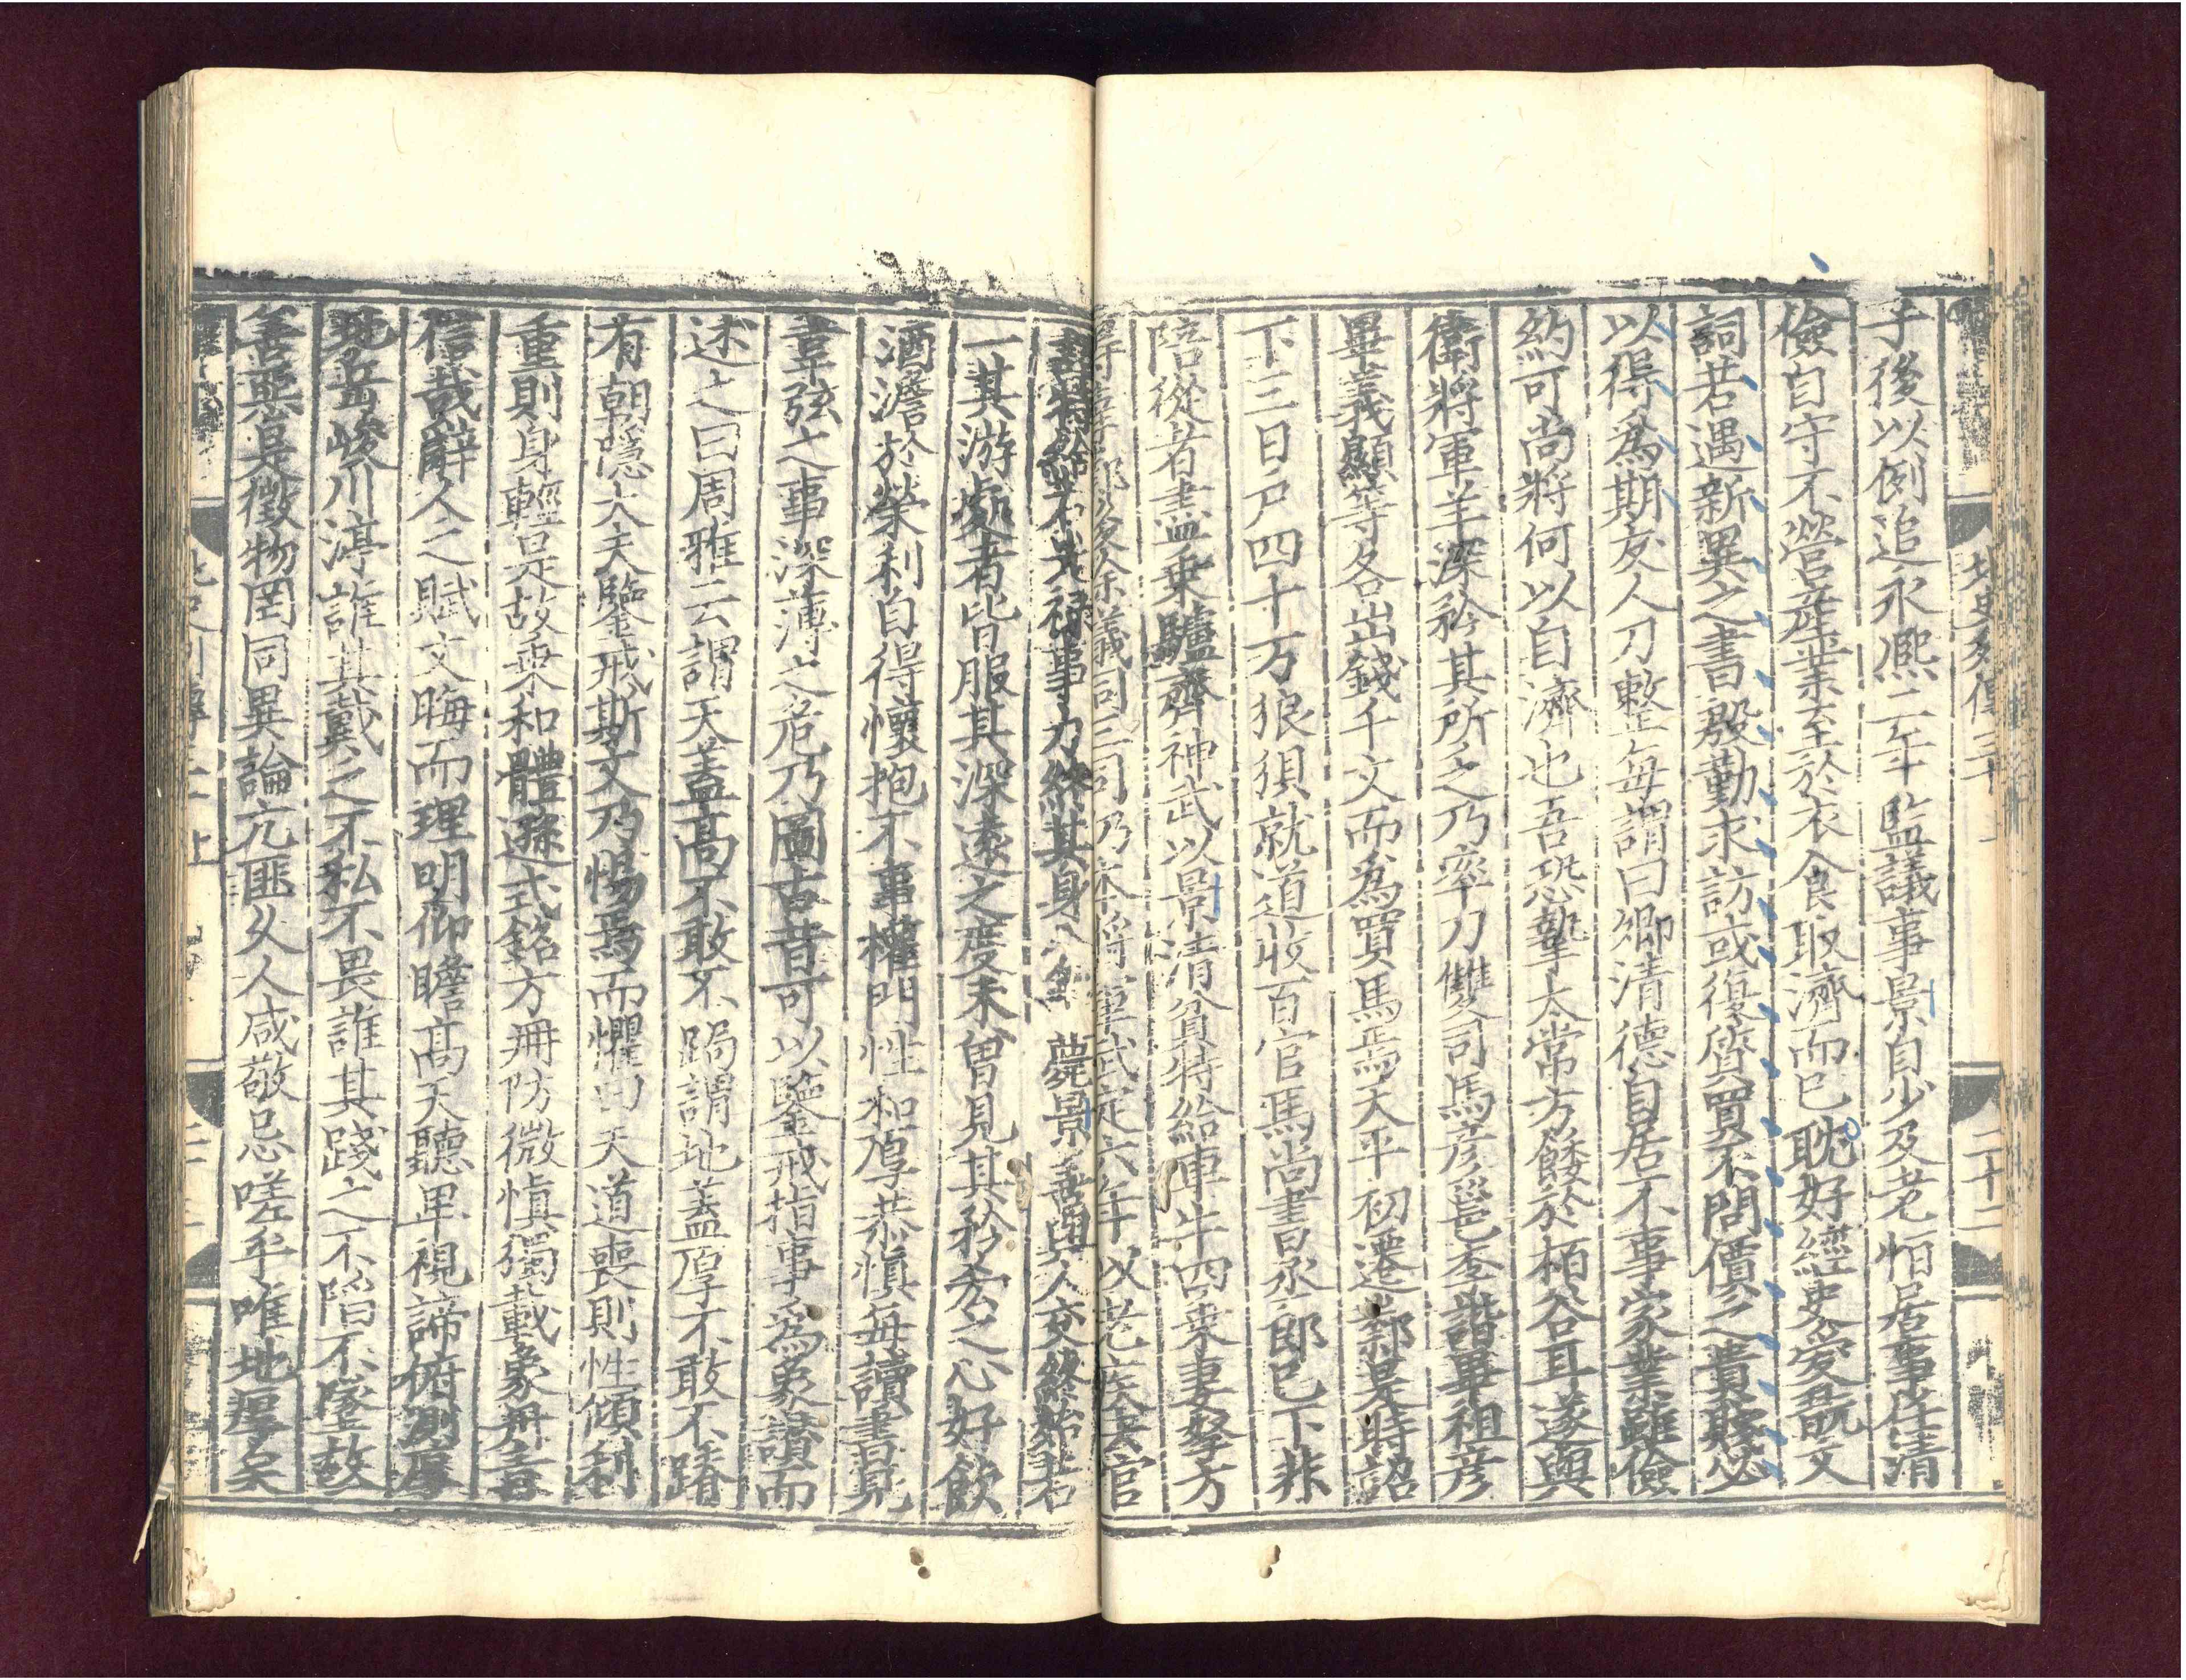 北史列傳三十 二十二
子後以例追永熙二年監議事景自少及老恒居事任清
儉自守不營産業至於衣食取濟而已耽好經史愛翫文
詞若遇新異之書殷勤求訪或復質買不問價之貴賤必
以得爲期友人刀整每謂曰卿清德自居不事家業雖儉
約可尚將何以自濟也吾恐摯太常方餒於栢谷耳遂與
衛將軍羊深矜其所乏乃率刀雙司馬彦邕李諧畢祖彦
畢義顯等各出錢千文而爲買馬焉天平初遷鄴是時詔
下三日戸四十万狼狽就道收百官馬尚書丞郎已下非
陪從者盡乗驢齊神武以景清貧特給車牛四乗妻孥方
得達鄴後除儀同三司仍本將軍武定六年以老疾去官
書特給若光禄事力終其身八年薨景善與人交終始若
一其游處者皆服其深遠之度未曽見其矜吝之心好飲
酒澹於榮利自得懷抱不事權門性和厚恭愼每讀書見
韋弦之事深薄之危乃圖古昔可以鑒戒指事爲象讃而
述之曰周雅云謂天蓋髙不敢不跼謂地蓋厚不敢不蹐
有朝隱大夫鑒戒斯文乃惕焉而懼曰天道喪則性傾利
重則身輕是故乗和體遜式銘方冊防微愼獨載象丹青
信哉辭人之賦文晦而理明仰瞻髙天聽卑視諦俯測厚
地岳峻川渟誰其戴之不私不畏誰其踐之不陷不墜故
善惡是徵物罔同異論亢匪久人咸敬忌嗟乎唯地厚矣
北史列傳三十 二十二